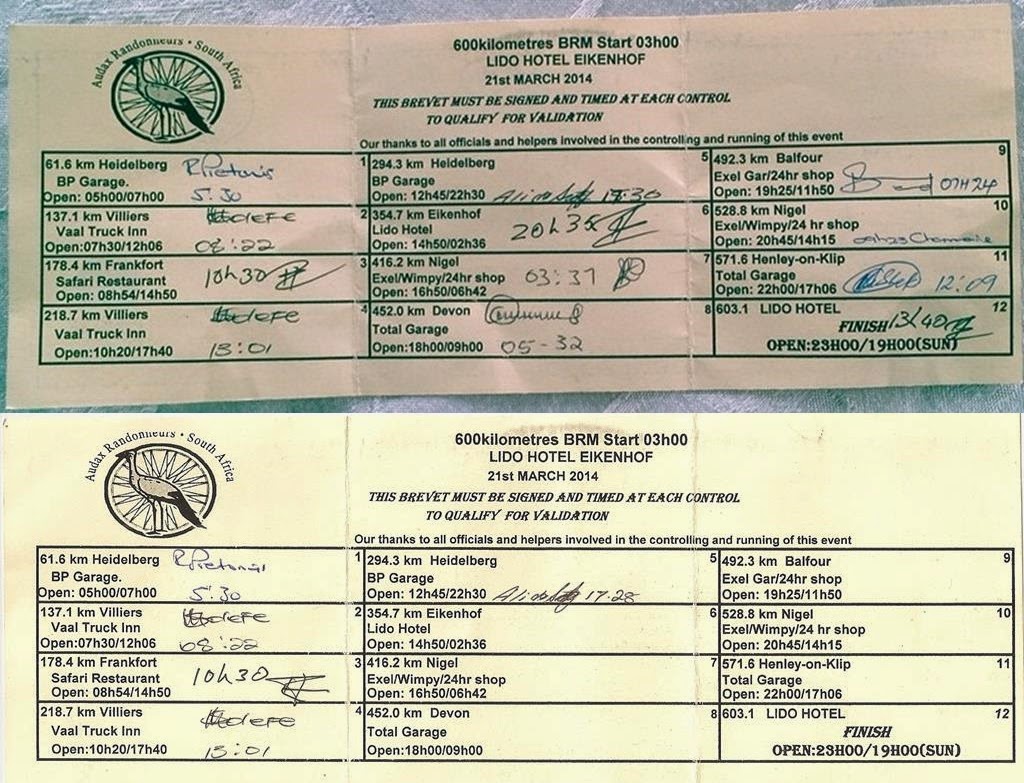 Audax Randonneurs • South Africa
600kilometres BRM Start 03h00
LIDO HOTEL EIKENHOF
21st MARCH 2014
THIS BREVET MUST BE SIGNED AND TIMED AT EACH CONTROL
TO QUALIFY FOR VALIDATION
Our thanks to all officials and helpers involved in the controlling and running of this event
61.6 km Heidelberg 1
BP Garage.
Open: 05h00/07h00 5.30
137.1 km Villiers 2
Vaal Truck Inn
Open:07h30/12h06 08:22
178.4 km Frankfort 10h30 3
Safari Restaurant
Open: 08h54/14h50
218.7 km Villiers 4
Vaal Truck Inn
Open:10h20/17h40 13:01
294.3 km Heidelberg 5
BP Garage
Open: 12h45/22h30
354.7 km Eikenhof 6
Lido Hotel 20h35
Open: 14h50/02h36
416.2 km Nigel 7
Exel/Wimpy/24hr shop 03:37
Open: 16h50/06h42
452.0 km Devon 8
Total Garage
Open:18h00/09h00 05-32
492.3 km Balfour 9
Exel Gar/24hr shop
Open: 19h25/11h50 07H24
528.8 km Nigel 10
Exel/Wimpy/24 hr shop
Open: 20h45/14h15
571.6 Henley-on-Klip 11
Total Garage
Open: 22h00/17h06 12:09
603.1 LIDO HOTEL 12
FINISH 13h40
OPEN:23H00/19H00(SUN)
Audax Randonneurs • South Africa
600kilometres BRM Start 03h00
LIDO HOTEL EIKENHOF
21st MARCH 2014
THIS BREVET MUST BE SIGNED AND TIMED AT EACH CONTROL
TO QUALIFY FOR VALIDATION
Our thanks to all officials and helpers involved in the controlling and running of this event
61.6 km Heidelberg 1
BP Garage.
Open: 05h00/07h00 5.30
137.1 km Villiers 2
Vaal Truck Inn
Open:07h30/12h06 08:22
178.4 km Frankfort 10h30 3
Safari Restaurant
Open: 08h54/14h50
218.7 km Villiers 4
Vaal Truck Inn
Open:10h20/17h40 13:01
294.3 km Heidelberg 5
BP Garage
Open: 12h45/22h30 17.28
354.7 km Eikenhof 6
Lido Hotel
Open: 14h50/02h36
416.2 km Nigel 7
Exel/Wimpy/24hr shop
Open: 16h50/06h42
452.0 km Devon 8
Total Garage
Open:18h00/09h00
492.3 km Balfour 9
Exel Gar/24hr shop
Open: 19h25/11h50
528.8 km Nigel 10
Exel/Wimpy/24 hr shop
Open: 20h45/14h15
571.6 Henley-on-Klip 11
Total Garage
Open: 22h00/17h06
603.1 LIDO HOTEL 12
FINISH
OPEN:23H00/19H00(SUN)